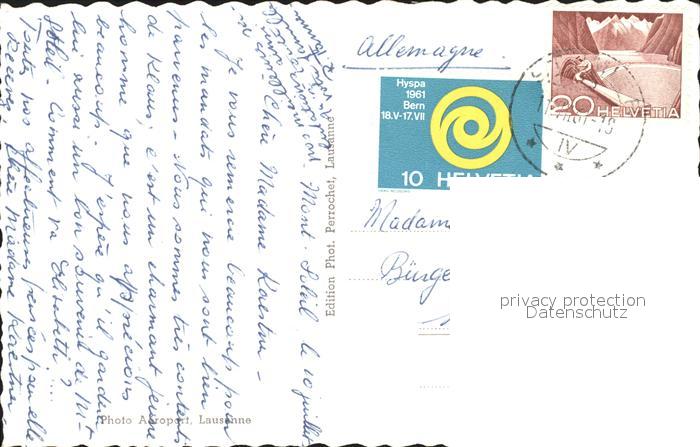 Mont-Soleil le 10 juillet
Chère Madame Kerstin -
Je vous remercie beaucoup pour
les mandats qui nous sont bien
parvenus - Nous sommes très contents
de Klaus, c'est un charmant jeune
homme que nous apprécions
beaucoup. J'espère qu'il gardera
lui aussi un bon souvenir de Mt-
Soleil - Comment va Elisabeth ? ...
Toutes nos affectueuses pensées pour elle
Recevez chère Madame Kerstin
Photo Aéroport, Lausanne
Edition Phot. Perrochet, Lausanne
Allemagne.
Hyspa
1961
Bern
18.V-17.VII
10 HELVETIA
20 HELVETIA
IV
Madam
Bürge
privacy protection
Datenschutz